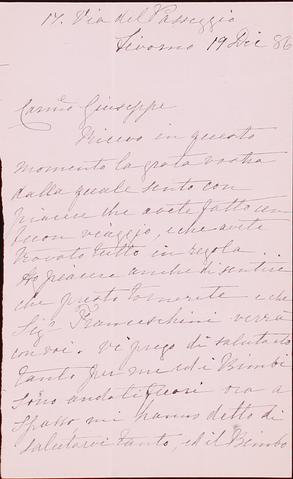 17. Via del Passeggio
Livorno 19 Dic 86
Carmo Giuseppe
Ricevo in questo
momento la grata vostra
dalla quale sento con
piacere che avete fatto un
buon viaggio, e che avete
trovato tutto in regola.
Ho piacere anche di sentire
che presto tornerete e che
Sigr Franceschini verrà
con voi. Vi prego di salutarlo
tanto per me ed i Bimbi
sono andati fuori ora a
spasso mi hanno detto di
salutarvi tanto, ed il Bimbo